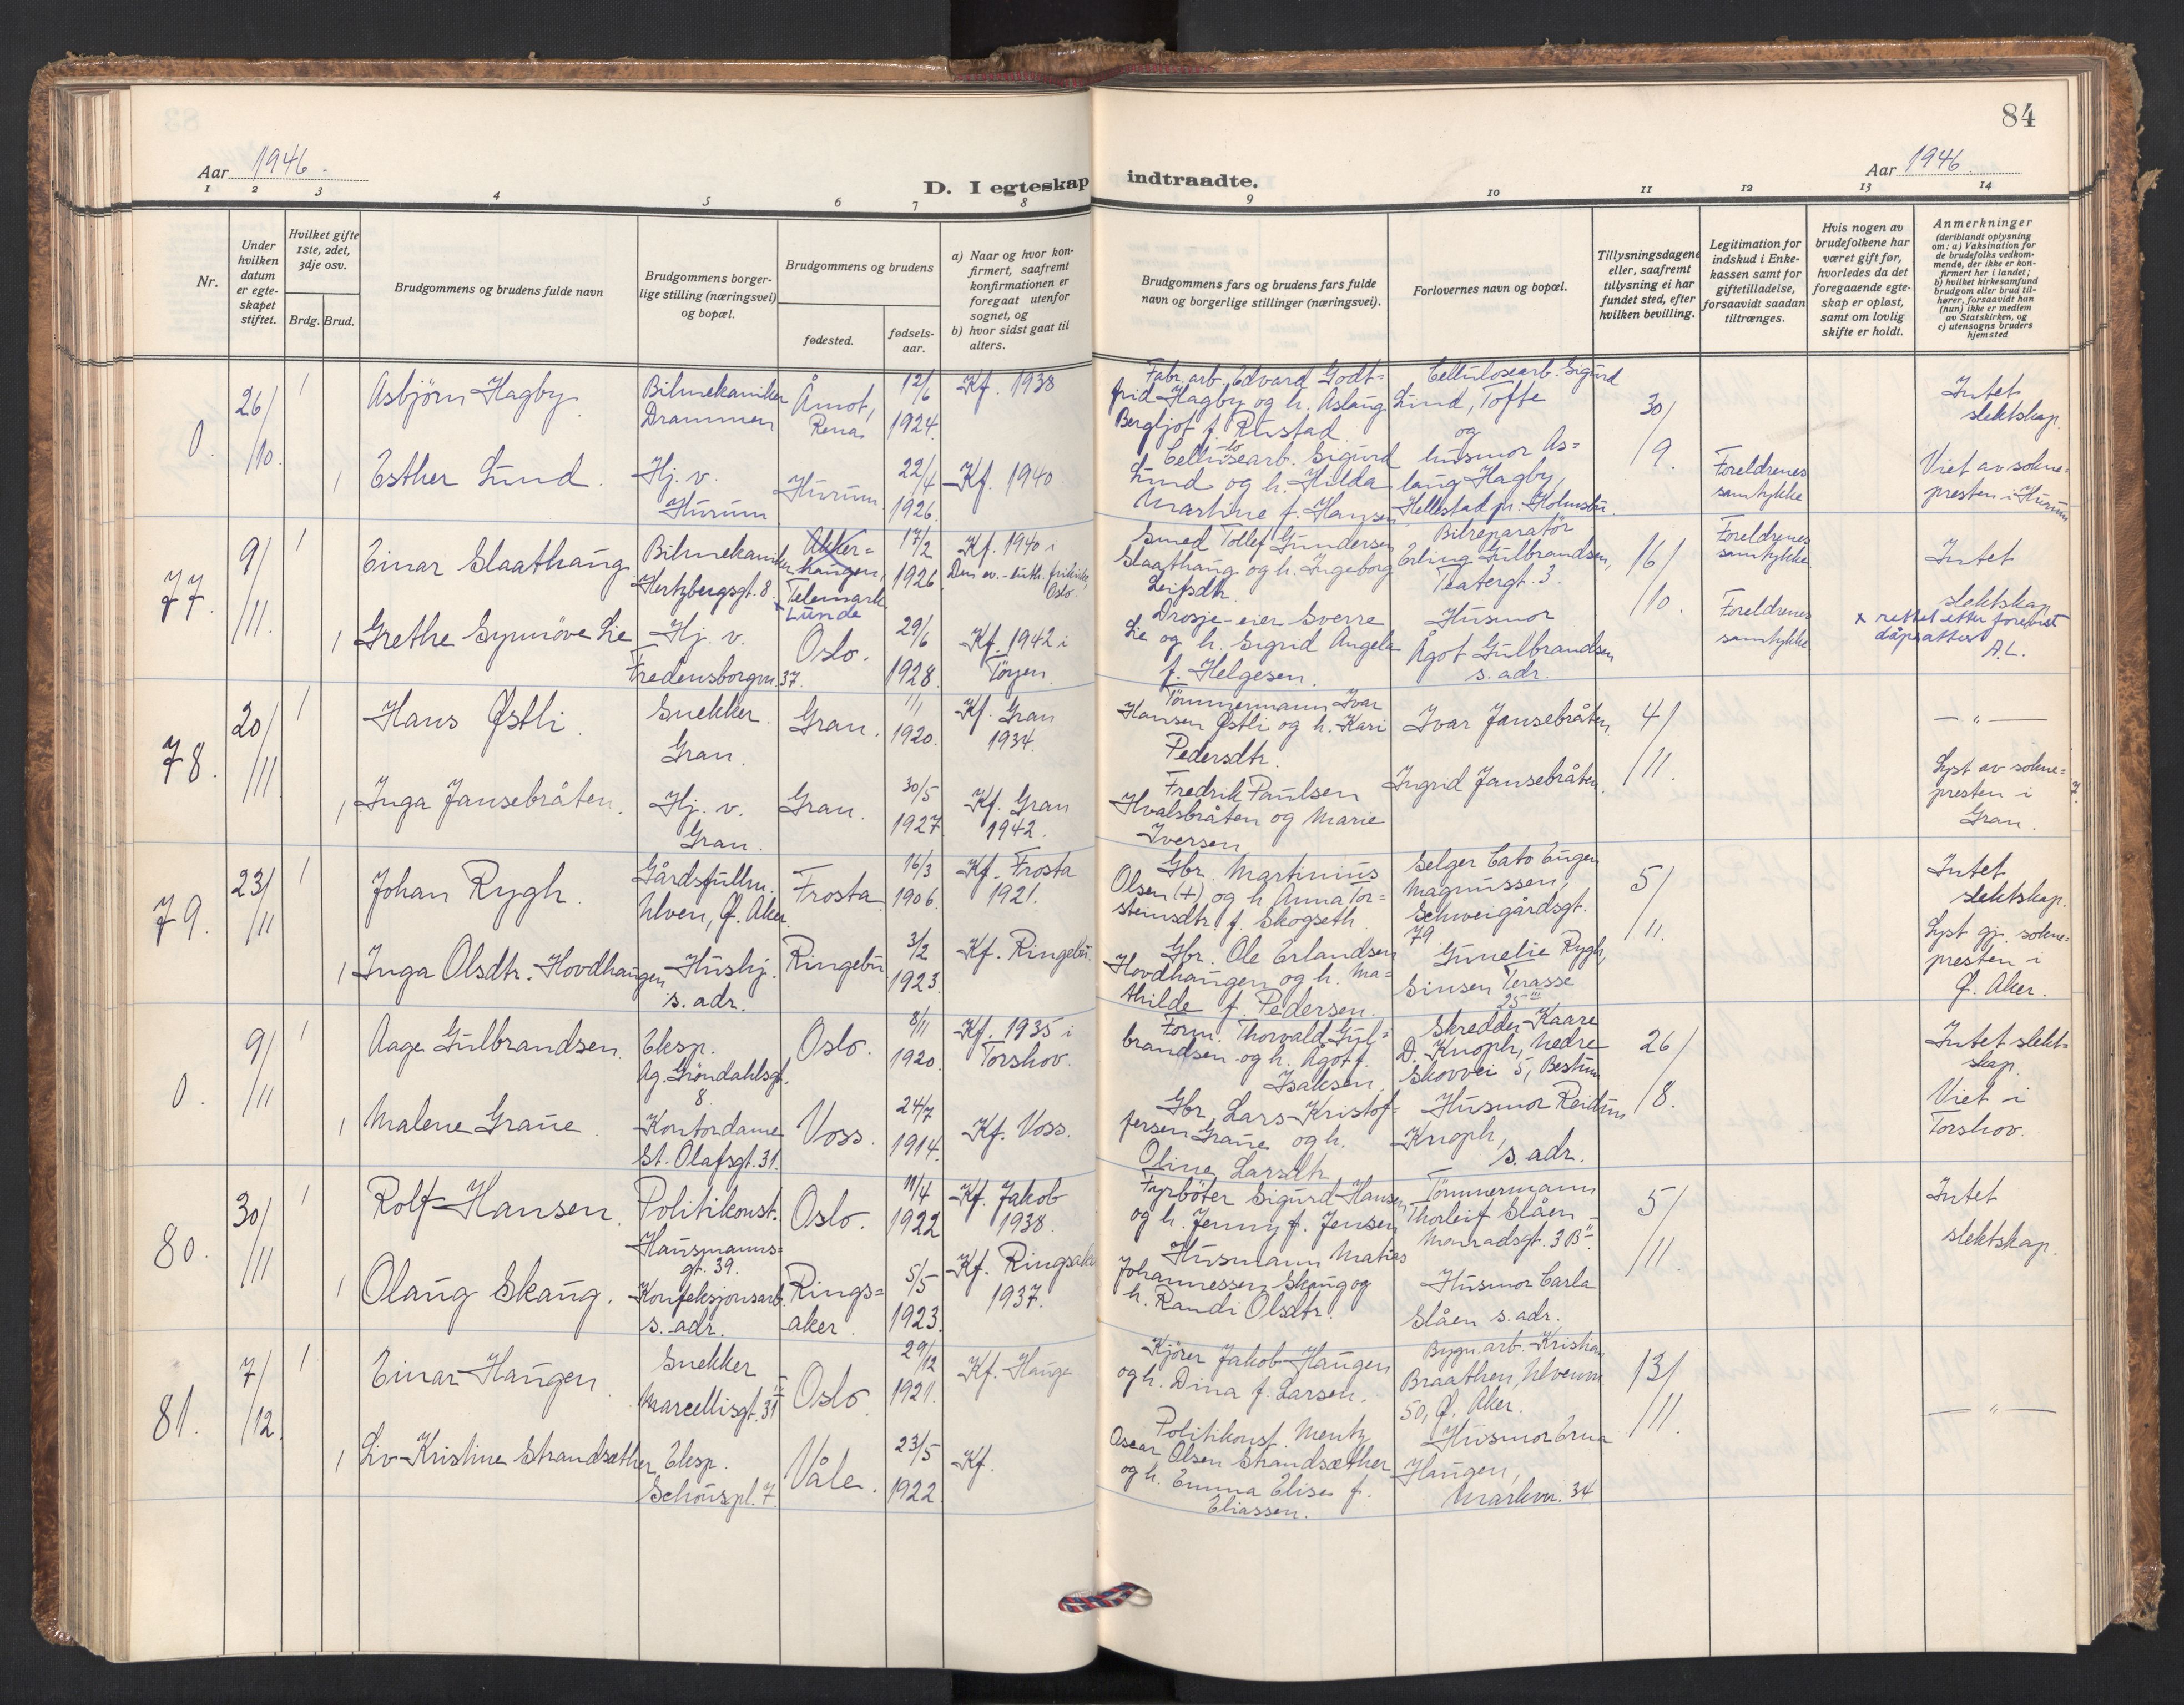 84
Aar 1946.
D. I egteskap indtraadte.
Aar 1946
1 2 3 4 5 6 7 8 9 10 11 12 13 14
Nr.
Under hvilken datum er egte-skapet stiftet.
Hvilket gifte 1ste, 2det, 3dje osv.
Brdg. Brud.
Brudgommens og brudens fulde navn
Brudgommens borger-lige stilling (næringsvei) og bopæl.
Brudgommens og brudens
fødested.
fødsels-aar.
a) Naar og hvor kon-firmert, saafremt konfirmationen er foregaat utenfor sognet, og
b) hvor sidst gaat til alters.
Brudgommens fars og brudens fars fulde navn og borgerlige stillinger (næringsvei).
Forlovernes navn og bopæl.
Tillysningsdagene eller, saafremt tillysning ei har fundet sted, efter hvilken bevilling.
Legitimation for indskud i Enke-kassen samt for giftetilladelse, forsaavidt saadan tiltrænges.
Hvis nogen av brudefolkene har været gift før, hvorledes da det foregaaende egte-skap er opløst, samt om lovlig skifte er holdt.
Anmerkninger
(deriblandt oplysning om: a) Vaksination for de brudefolks vedkom-mende, der ikke er kon-firmert her i landet; b) hvilket kirkesamfund brudgom eller brud til-hører, forsaavidt han (hun) ikke er medlem av Statskirken, og c) utensogns bruders hjemsted
0. 26/10. 1 Asbjørn Hagby
Bilmekaniker Drammen
Åmot, Rena
12/6 1924.
Kf. 1938
Fabr. arb. Edvard Godt=
frid Hagby og h. Aslaug
Bergljot f. Rustad.
Cellulosearb. Sigurd
Lund, Tofte
og
30/9.
Intet
slektskap.
1 Esther Lund.
Hj. v.
Hurum
Hurum
22/4 1926.
Kf. 1940
Cellulosearb. Sigurd
Lund og h. Hilda
Martine f. Hansen
husmor As=
laug Hagby,
Hellestad pr. Holmsbu.
Foreldrenes
samtykke
Viet av sokne=
presten i Hurum
77. 9/11. 1 Einar Slaathaug
Bilmekaniker
Hertzbergsgt. 8.
Akker=
haugen,
Telemark
x Lunde
17/2 1926
Kf. 1940 i
Den ev.-luth. frikirke,
Oslo.
Smed Tollef Gundersen
Slaathaug og h. Ingeborg
Leifsdtr.
Bilreparatør
Erling Gulbrandsen,
Teatergt. 3.
16/10.
Foreldrenes
samtykke
Intet
slektskap
1 Grethe Synnöve Lie
Hj. v.
Fredensborgvn. 37.
Oslo.
29/6 1928.
Kf. 1942 i
Töyen
Drosje-eier Sverre
Lie og h. Sigrid Angela
f. Helgesen.
Husmor
Ågot Gulbrandsen
s. adr.
Foreldrenes
samtykke
x rettet etter forevist
dåpsattest
A.L.
78. 20/11. 1 Hans Østli
Snekker
Gran.
Gran.
1/1 1920.
Kf. Gran
1934.
Tömmermann Ivar
Hansen Østli og h. Kari
Pedersdtr.
Ivar Jansebråten,
4/11.
— " —
1 Inga Jansebråten.
Hj. v.
Gran.
Gran.
30/5 1927
Kf. Gran
1942.
Fredrik Paulsen
Hvalsbråten og Marie
Iversen
Ingrid Jansebråten.
Lyst av sokne=
presten i
Gran.
79. 23/11 1 Johan Rygh.
Gårdsfullm.
Ulven, Ø. Aker.
Frosta
16/3 1906.
Kf. Frosta
1921.
Gbr. Martinius
Olsen (+) og h. Anna Tor=
steinsdtr. f. Skogseth.
Selger Cato Eugen
Magnussen,
Schweigårdsgt.
79.
5/11.
Intet
slektskap.
1 Inga Olsdtr. Hovdhaugen
Hushj.
s. adr.
Ringebu
3/2 1923.
Kf. Ringebu.
Gbr. Ole Erlandsen
Hovdhaugen og h. Ma=
thilde f. Pedersen.
Gunelie Rygh,
Sinsen Terasse
25 III
Lyst gj. sokne=
presten i
Ø. Aker.
0. 9/11 1 Aage Gulbrandsen.
Eksp.
Ag. Gröndahlsgt.
8.
Oslo.
8/11 1920.
Kf. 1935 i
Torshov.
Form. Thorvald Gul=
brandsen og h. Ågot f.
Isaksen.
Skredder Kaare
D. Knoph, Nedre
Skovvei 5, Bestum
26/8.
Intet slekt=
skap.
1 Malene Graue.
Kontordame
St. Olafsgt. 31.
Voss.
24/7 1914.
Kf. Voss.
Gbr. Lars Kristof=
fersen Graue og h.
Oline Larsdtr.
Husmor Reidun
Knoph,
s. adr.
Viet i
Torshov.
80. 30/11 1 Rolf Hansen.
Politikonst.
Hausmanns=
gt. 39.
Oslo.
11/4 1922
Kf. Jakob
1938.
Fyrböter Sigurd Hansen,
og h. Jenny f. Jensen
Tömmermann
Thorleif Slåen
Monradsgt. 3 B II.
5/11.
Intet
slektskap.
1 Olaug Skaug.
Konfeksjonsarb.
s. adr.
Rings=
aker.
5/5 1923.
Kf. Ringsaker
1937.
Husmann Matias
Johannessen Skaug og
h. Randi Olsdtr.
Husmor Carla
Slåen s. adr.
81. 7/12. 1 Einar Haugen.
Snekker
Marcellisgt. 31
Oslo.
29/12 1921.
Kf. Hauge
Kjörer Jakob Haugen
og h. Dina f. Larsen.
Bygn. arb. Kristian
Braathen, Ulvenvn
50, Ø. Aker.
13/11.
— " —
1 Liv Kristine Strandsæther,
Eksp.
Schouspl. 7.
Våle.
23/5 1922.
Kf.
Politikonst. Mentz
Oscar Olsen Strandsæther
og h. Emma Elise f.
Eliassen.
Husmor Erna
Haugen,
Markvn. 34.